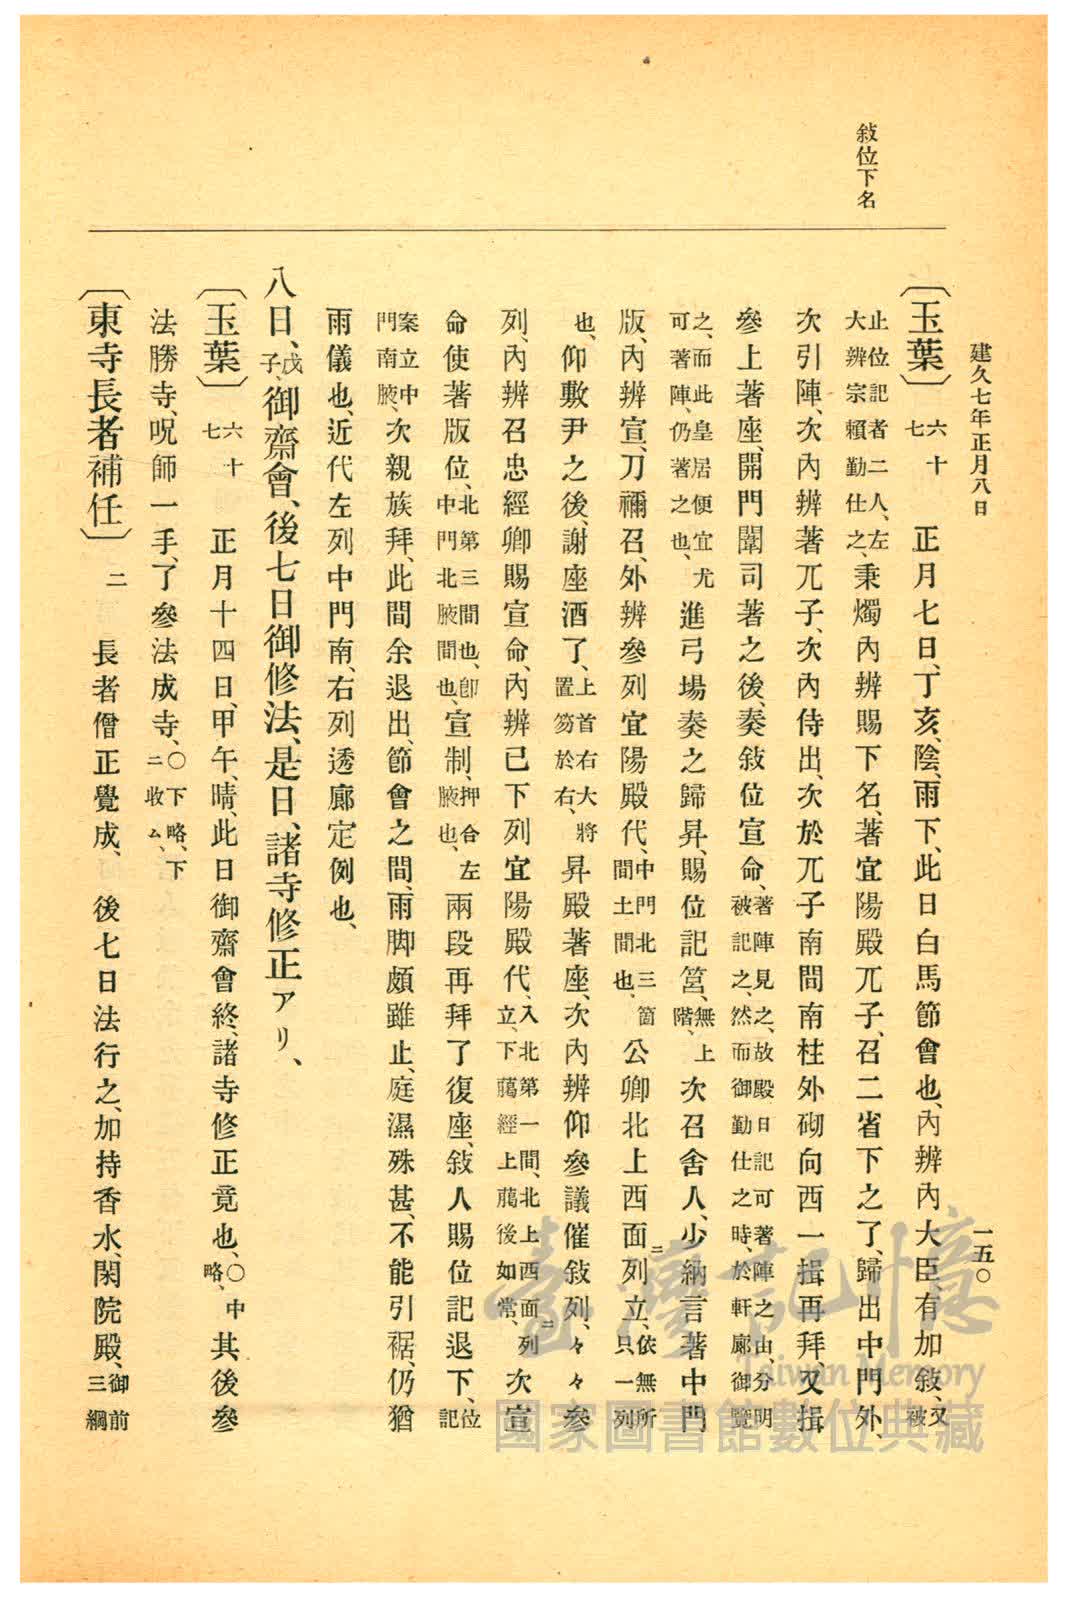 建久七年正月八日
一五〇
敍位下名
〔玉葉〕六十七 正月七日、丁亥、陰、雨下、此日白馬節會也、內辨內大臣、有加敍、又被
止位記者二人、左大辨宗賴勤仕之、秉燭內辨賜下名、著宜陽殿兀子、召二省下之了、歸出中門外、
次引陣、次內辨著兀子、次內侍出、次於兀子南間南柱外砌向西一揖再拜、又揖
參上著座、開門闈司著之後、奏敍位宣命、著陣見之、故殿日記可著陣之由、分明被記之、然而御勤仕之時、於軒廊御覽
之、而此皇居便宜尤可著陣、仍著之也、進弓場奏之歸昇、賜位記筥、無上階、次召舍人、少納言著中門
版、內辨宣、刀禰召、外辨參列宜陽殿代、中門北三箇間土間也、公卿北上西面ニ列、立、依無所只一列
也、仰敷尹之後、謝座酒了、上首右大將置笏於右、昇殿著座、次內辨仰參議催敍列、々々參
列、內辨召忠經卿賜宣命、內辨已下列宜陽殿代、入北第一間、北上西面ニ列立、下﨟經上﨟後如常、次宣
命使著版位、北第三間也、卽中門北腋間也、宣制、押合左腋也、兩段再拜了復座、敍人賜位記退下、位記
案立中門南腋、次親族拜、此間余退出、節會之間、雨脚頗雖止、庭濕殊甚、不能引裾、仍猶
雨儀也、近代左列中門南、右列透廊定例也、
八日、戊子、御齋會、後七日御修法、是日、諸寺修正アリ、
〔玉葉〕六十七 正月十四日、甲午、晴、此日御齋會終、諸寺修正竟也、〇中略、其後參
法勝寺、呪師一手、了參法成寺、〇下略、下ニ收ム、
〔東寺長者補任〕二 長者僧正覺成、 後七日法行之、加持香水、閑院殿、御前三綱
臺灣記憶
Taiwan Memory
國家圖書館數位典藏